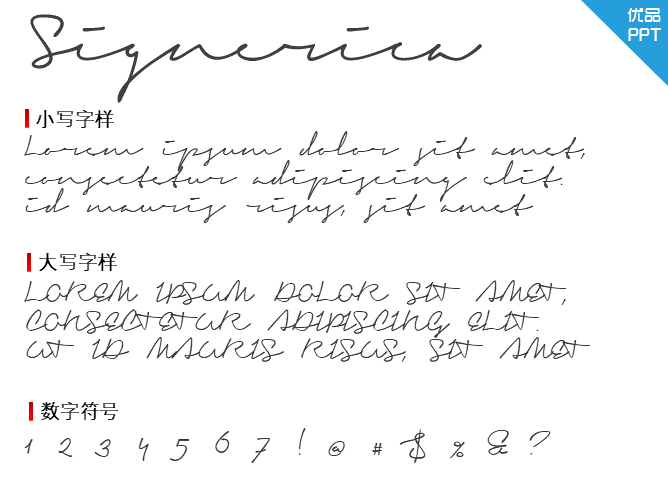 优品
PPT
Signerica
小写字样
Lorem ipsum dolor sit amet,
consectetur adipiscing elit.
id mauris risus, sit amet
大写字样
LOREM IPSUM DOLOR SIT AMET,
CONSECTETUR ADIPISCING ELIT.
UT ID MAURIS RISUS, SIT AMET
数字符号
1 2 3 4 5 6 7 ! @ # $ % & ?